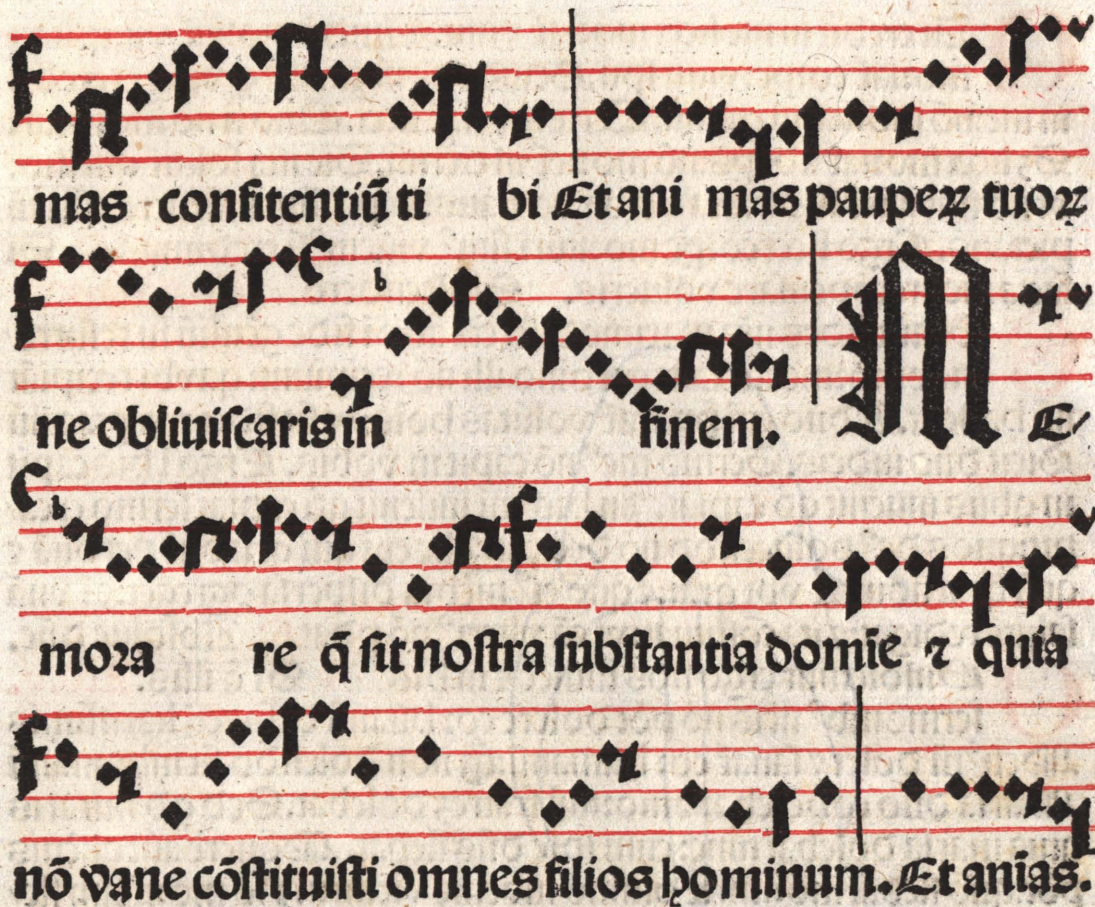 mas confitentiū ti bi Et ani mas pauperꝝ tuorꝝ
ne obliuiſcaris in finem. ME/
moꝛa re q̄ ſit noſtra ſubſtantia domīe ⁊ quia
nō vane cōſtituiſti omnes filios hominum. Et anīas.